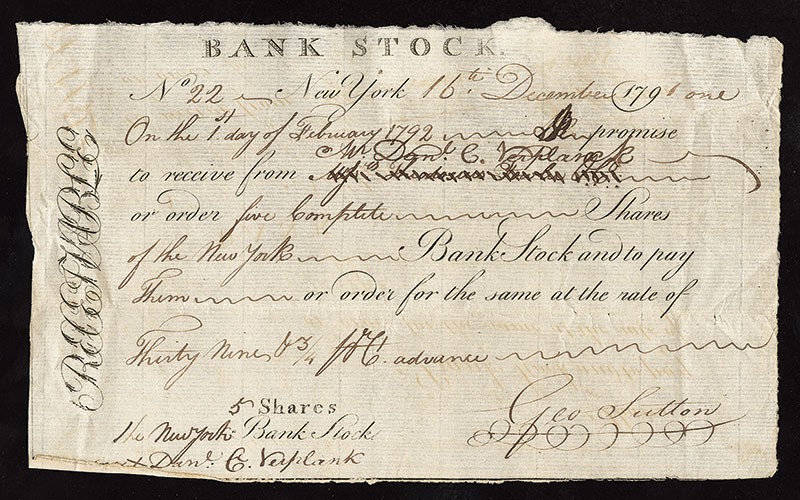 BANK STOCK.
No 22 New York 16th December 1791 one
On the 1st day of February 1792 I promise
Mr Danl. C. Verplanck
to receive from
or order five Complete Shares
of the New York Bank Stock and to pay
Them or order for the same at the rate of
Thirty Nine & 3/4 P Ct. advance
Geo Sutton
5 Shares
New York Bank Stock
Danl. C. Verplank
RECEIVABLE